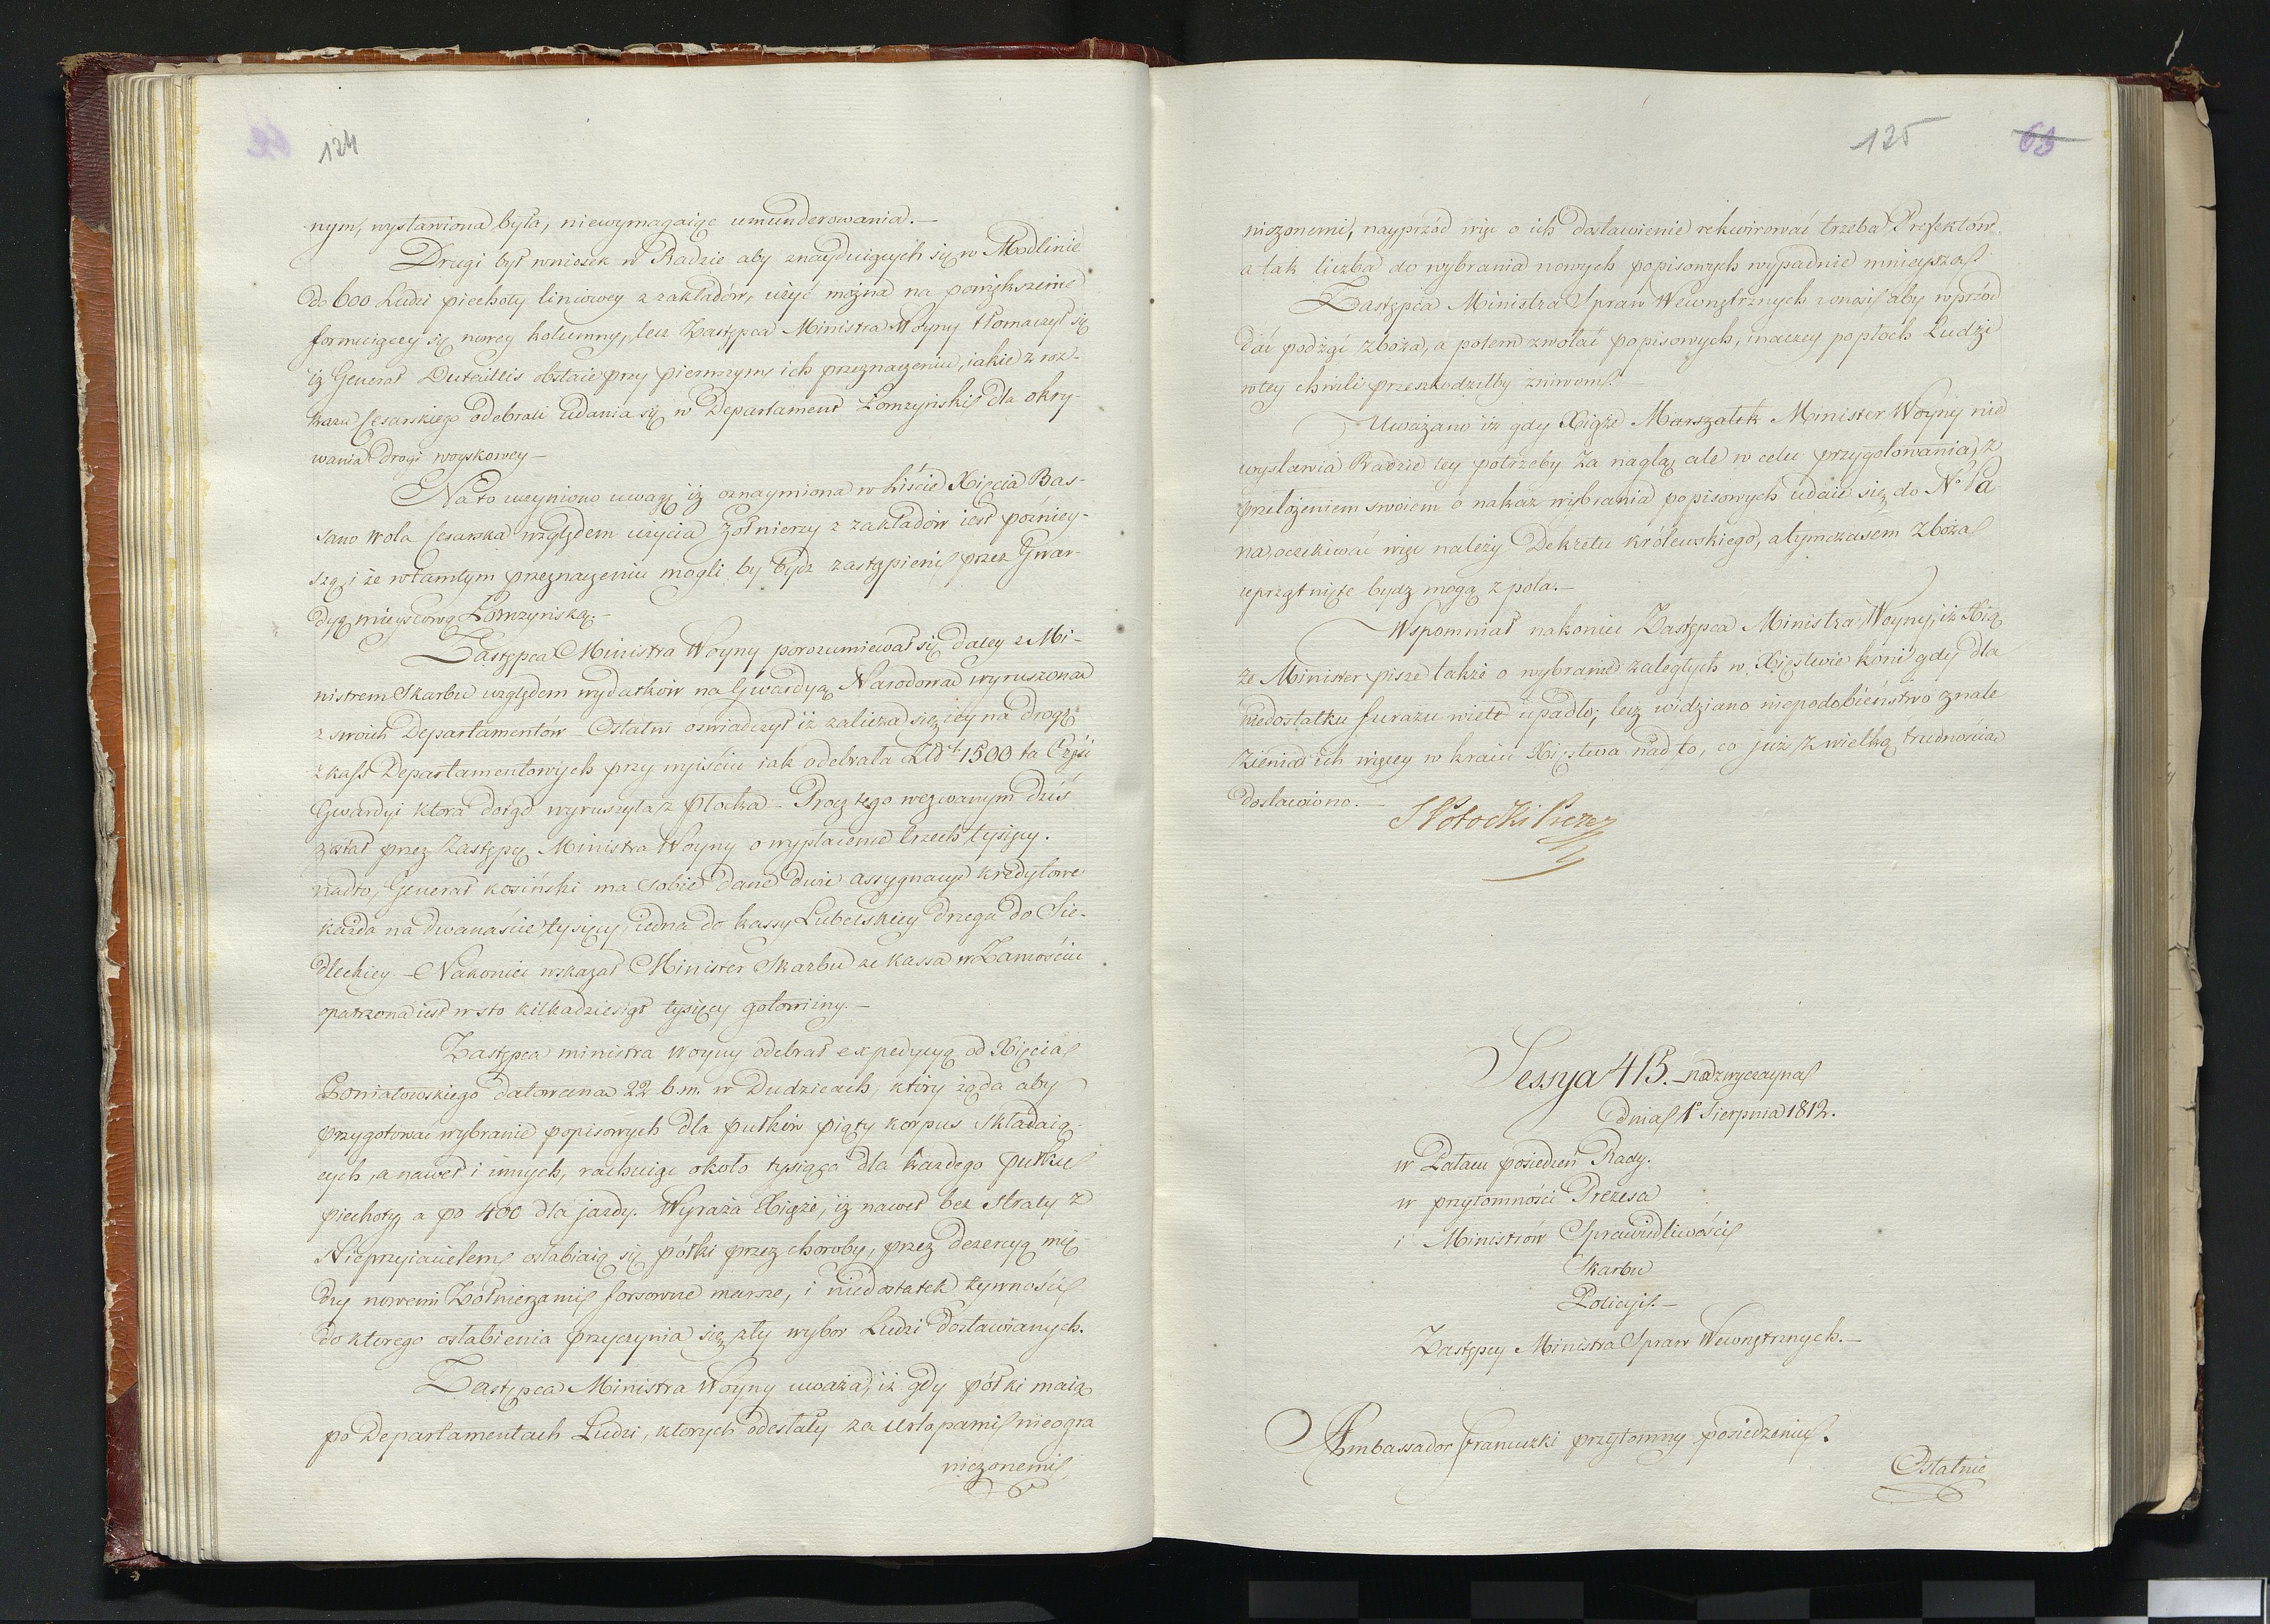 124
nym, wystawiona była, niewymagaiąc umunderowania.—
Drugi był wniosek w Radzie aby znayduiących się w Modlinie
do 600 Ludzi piechoty liniowey z zakładów, użyć można na powiększenie
formuiącey się nowey kolumny, lecz Zastępca Ministra Woyny tłomaczył się
iż Generał Dutaillis obstaie przy pierwszym ich przeznaczeniu, jakie z roz-
kazu Cesarskiego odebrali udania się w Departament Łomżyński dla okry-
wania drogi woyskowey—
Na to uczyniono uwagę iż oznaymiona w Liście Xięcia Bas-
sano wola Cesarska względem użycia żołnierzy z zakładów iest poźniey-
szą, i że w tamtym przeznaczeniu mogli by bydz zastąpieni przez Gwar-
dyą mieyscową Łomżyńską.—
Zastępca Ministra Woyny porozumiewał się daley z Mi-
nistrem Skarbu względem wydatków na Gwardyą Narodową wyruszoną
z swoich Departamentów— Ostatni oświadczył iż zalicza się iey na drogę
z kass Departamentowych przy wyiściu iak odebrała Złt. 1500 ta Część
Gwardyi która dotąd wyruszyła z Płocka— Procz tego wezwanym dziś
został przez Zastępcę Ministra Woyny o wypłacenie trzech tysięcy.
nadto, Generał Kosiński ma sobie dane dwie assygnacye kredytowe
każda na dwanaście tysięcy, iedna do kassy Lubelskiey druga do Sie-
dleckiey.— Nakoniec wskazał Minister Skarbu że kassa w Zamościu
opatrzona iest w sto kilkadziesiąt tysięcy gotowizny.—
Zastępca ministra Woyny odebrał expedycyą od Xięcia
Poniatowskiego datowaną 22 b.m. w Dudzicach, który żąda aby
przygotować wybranie popisowych dla pułków piąty korpus składaią-
cych, a nawet i innych, rachuiąc około tysiąca dla każdego pułku
piechoty, a po 400 dla jazdy. Wyraża Xiąże, iż nawet bez straty z
Nieprzyiacielem osłabiaią się półki przez choroby, przez dezercyą mię-
dzy nowemi Żołnierzami, forsowne marsze, i niedostatek żywności
do którego osłabienia przyczynia się zły wybor Ludzi dostawianych.
Zastępca Ministra Woyny uważa, iż gdy półki maią
po Departamentach Ludzi, których odesłały za urlopami nieogra
niczonemi
125
63
niczonemi, nayprzód więc o ich dostawienie rekwirować trzeba Prefektów
a tak liczba do wybrania nowych popisowych wypadnie mnieysza.
Zastępca Ministra Spraw Wewnętrznych wnosił aby wprzód
dać podżąć zboża, a potem zwołać popisowych, inaczey popłoch Ludzi
w tey chwili przeszkodziłby żniwom.—
Uważano iż gdy Xiąże Marszałek Minister Woyny nie
wystawia Radzie tey potrzeby za nagłą, ale w celu przygotowania, z
przełożeniem swoiem o nakaz wybrania popisowych udaie się do N. Pa
na, oczekiwać więc należy Dekretu królewskiego, a tymczasem zboża
uprzątnięte bydź mogą z pola.—
Wspomniał nakoniec Zastępca Ministra Woyny, iż Xią
że Minister pisze także o wybranie zaległych w Xięstwie koni gdy dla
niedostatku furażu wiele upadło; lecz widziano niepodobieństwo znale
zienia ich więcey w kraiu Xięstwa nad to, co już z wielką trudnością
dostawiono.—
S Potocki Prezes
Sessya 413. nadzwyczayna
dnia 1o Sierpnia 1812.
w Pałacu posiedzeń Rady.
w przytomności Prezesa
i Ministrów Sprawiedliwości
Skarbu
Policyi.—
Zastępcy Ministra Spraw Wewnętrznych.—
Ambassador francuzki przytomny posiedzeniu.
Ostatnie